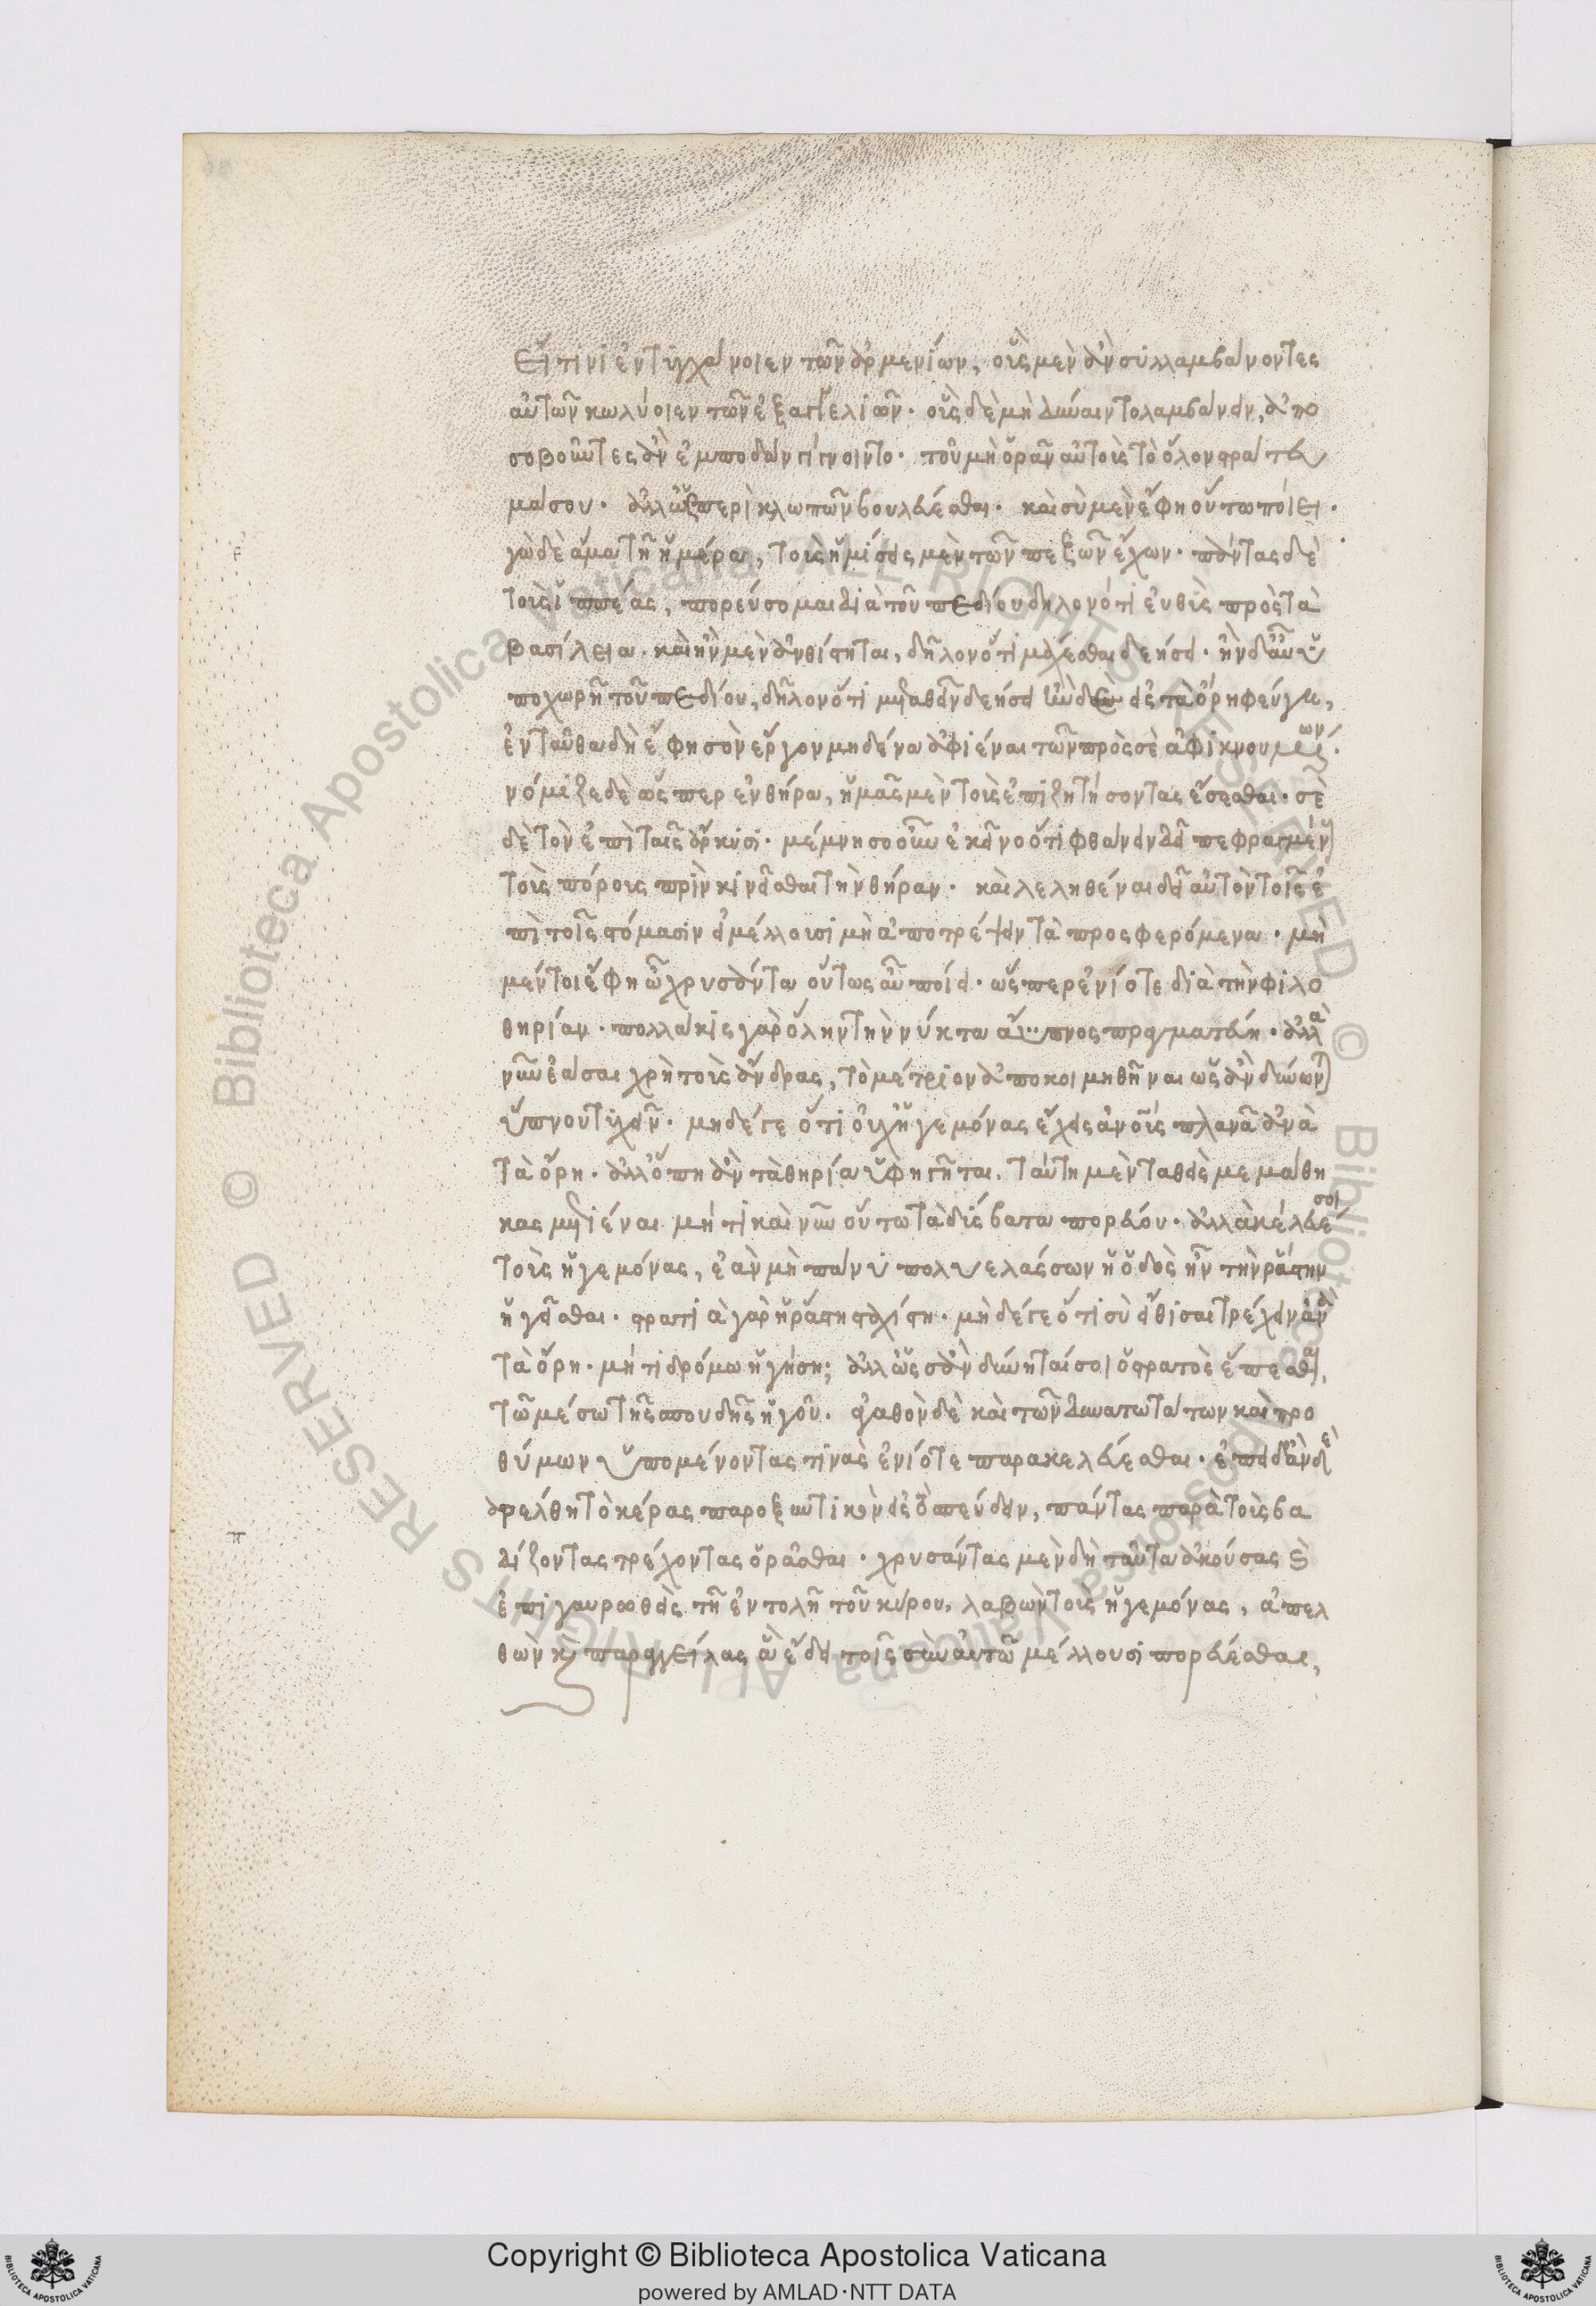 εἴ τινι ἐντυγχάνοιεν τῶν ἀρμενίων, οὓς μὲν ἂν συλλαμβάνοντες
αὐτῶν κωλύοιεν τῶν ἐξαγγελιῶν· οὓς δὲ μὴ δύναιντο λαμβάνειν, ἀπο
σοβοῦντες ἂν ἐμποδὼν γίγνοιντο· τοῦ μὴ ὁρᾶν αὐτοὺς τὸ ὅλον στράτευ
μά σου· ἀλλ' ὡς περὶ κλωπῶν βουλεύεσθαι· καὶ σὺ μὲν ἔφη οὕτω ποίει·
γὼ δὲ ἅμα τῇ ἡμέρα, τοὺς ἡμίσεις μὲν τῶν πεζῶν ἔχων· πάντας δὲ
τοὺς ἱππέας, πορεύσομαι διὰ τοῦ πεδίου δηλονότι εὐθὺς πρὸς τὰ
βασίλεια· καὶ ἢν μὲν ἀνθίστηται, δῆλον ὅτι μάχεσθαι δεήσει· ἢν δ' αὖ ὑ
ποχωρῆ τοῦ πεδίου, δῆλον ὅτι μεταθεῖν δεήσει ἢν δὲ εἰς τὰ ὄρη φεύγη,
ἐνταῦθα δὴ ἔφη σὸν ἔργον μηδένα ἀφιέναι τῶν πρὸς σὲ ἀφικνουμένων·
νόμιζε δὲ ὥσπερ ἐν θήρα, ἡμᾶς μὲν τοὺς ἐπιζητήσοντας ἔσεσθαι· σὲ
δὲ τὸν ἐπὶ ταῖς ἄρκυσι· μέμνησο οὖν ἐκεῖνο ὅτι φθάνειν δεῖ πεφραγμένους
τοὺς πόρους πρὶν κινεῖσθαι τὴν θήραν· καὶ λεληθέναι δεῖ αὐτὸν τοῖς ἐ
πὶ τοῖς στόμασιν εἰ μέλλουσι μὴ ἀποτρέψειν τὰ προσφερόμενα· μὴ
μέντοι ἔφη ὦ χρυσάντα οὕτως αὖ ποίει· ὥσπερ ἐνίοτε διὰ τὴν φιλο
θηρίαν· πολλάκις γὰρ ὅλην τὴν νύκτα ἄϋπνος πραγματεύη· ἀλλὰ
νῦν ἐᾶσαι χρὴ τοὺς ἄνδρας, τὸ μέτριον ἀποκοιμηθῆναι ὡς ἂν δύνωνται
ὕπνου τυχεῖν· μηδέ γε ὅτι οὐχ ἡγεμόνας ἔχεις ἀνους πλανᾶ ἀνὰ
τὰ ὄρη· ἀλλ' ὅπη ἂν τὰ θηρία ὑφηγῆται, ταύτη μεταθεῖς μεμάθη
κας μετιέναι μήτι καὶ νῦν οὕτω τὰ δύσβατα πορεύου· ἀλλὰ κέλευέ σοι
τοὺς ἡγεμόνας, ἐὰν μὴ πάνυ πολὺ ἐλάσσων ἡ ὁδὸς ἦν τὴν ράστην
ἡγεῖσθαι· στρατιᾶ γὰρ ἡ ράστη ταχίστη· μὴ δέ γε ὅτι σὺ εἴθισαι τρέχειν ἀνὰ
τὰ ὄρη· μήτι δρόμω ἡγήση; ἀλλ' ὡς ἂν δύνηταί σοι ὁ στρατὸς ἕπεσθαι,
τῶ μέσω τῆς σπουδῆς ἡγοῦ· ἀγαθὸν δὲ καὶ τῶν δυνατωτάτων καὶ προ
θύμων ὑπομένοντας τινὰς ἐνίοτε παρακελεύεσθαι· ἐπειδὰν δὲ
παρέλθη τὸ κέρας παροξυντικὸν εἰς τὸ σπεύδειν, πάντας παρὰ τοὺς βα
δίζοντας τρέχοντας ὁρᾶσθαι· χρυσάντας μὲν δὴ ταῦτα ἀκούσας καὶ
ἐπιγαυρωθεὶς τῆ ἐντολῆ τοῦ κύρου, λαβὼν τοὺς ἡγεμόνας, ἀπελ
θὼν καὶ παραγγείλας ἃ ἔδει τοῖς σὺν αὐτῶ μέλλουσι πορεύεσθαι,
Copyright © Biblioteca Apostolica Vaticana
powered by AMLAD·NTT DATA